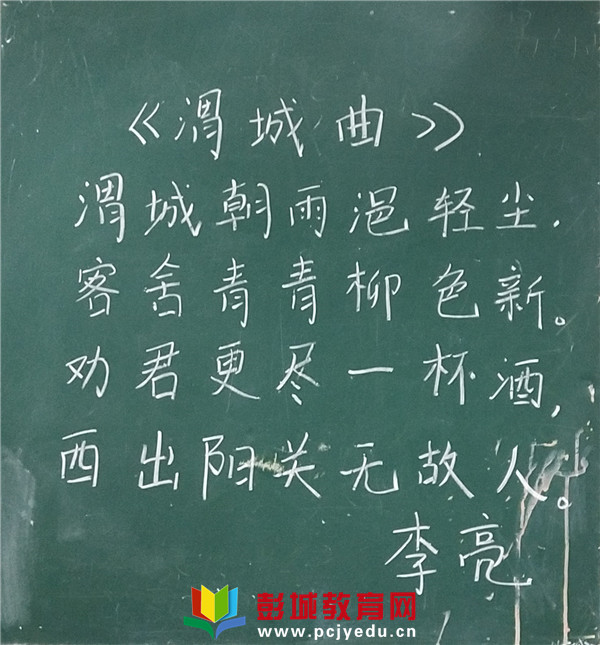 《渭城曲》
渭城朝雨浥轻尘.
客舍青青柳色新。
劝君更尽一杯酒,
西出阳关无故人。
李亮
彭城教育网
www.pcjyedu.cn